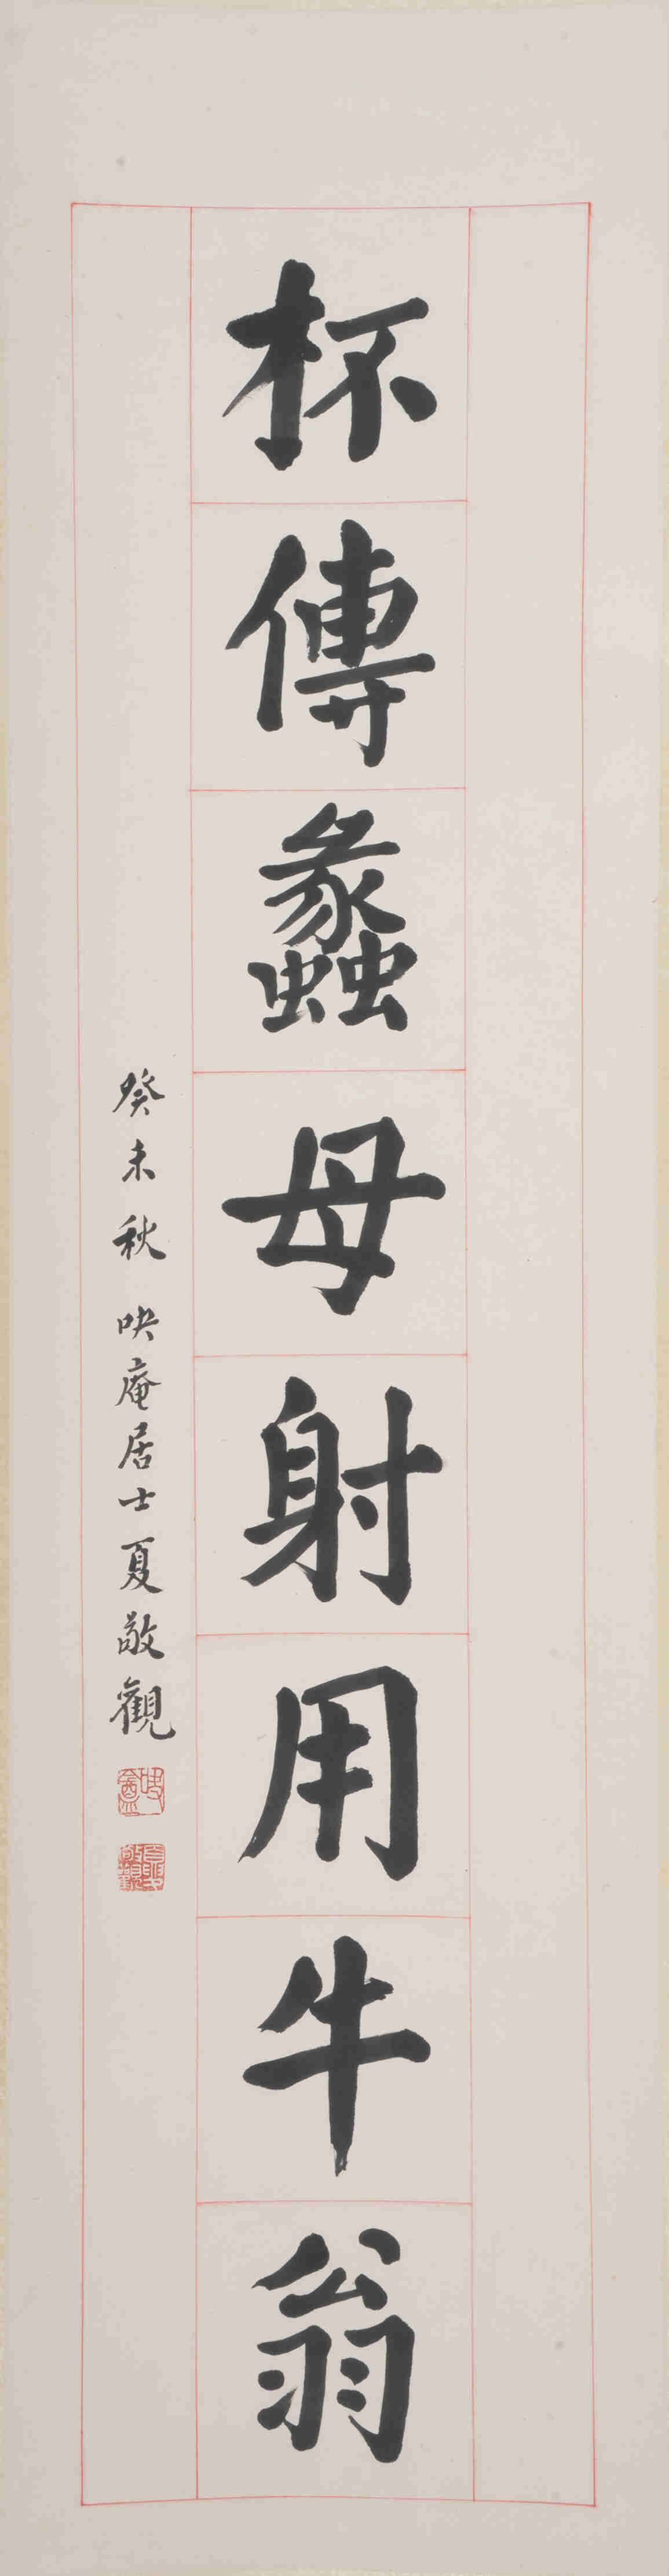 杯傳蠡母射用牛翁
癸未秋 吷庵居士夏敬觀